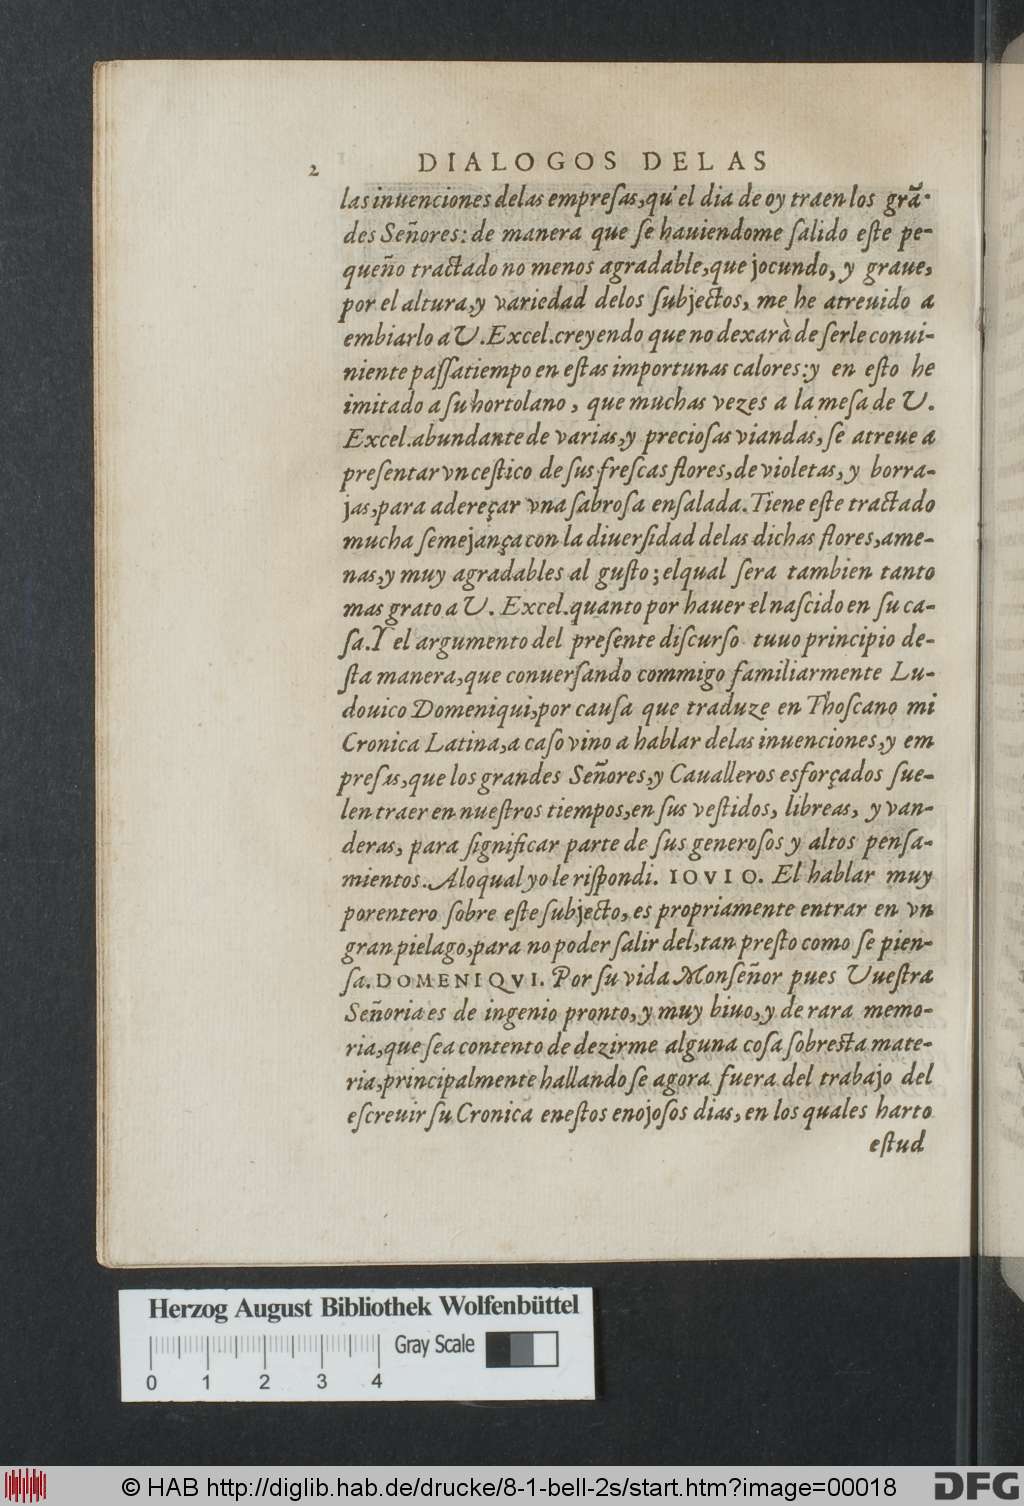 2 DIALOGOS DELAS
las inuenciones delas empreſas,qu'el dia de oy traen los grã-
des Señores: de manera que ſe hauiendome ſalido eſte pe-
queño tractado no menos agradable,que jocundo, y graue,
por el altura,y variedad delos ſubjectos, me he atreuido a
embiarlo a V. Excel.creyendo que no dexarà de ſerle conui-
niente paſſatiempo en eſtas importunas calores:y en eſto he
imitado a ſu hortolano, que muchas vezes a la meſa de V.
Excel.abundante de varias,y precioſas viandas, ſe atreue a
preſentar vn ceſtico de ſus freſcas flores,de violetas,y borra-
jas,para adereçar vna ſabroſa enſalada.Tiene eſte tractado
mucha ſemejança con la diuerſidad delas dichas flores,ame-
nas,y muy agradables al guſto;elqual ſera tambien tanto
mas grato a V. Excel.quanto por hauer el naſcido en ſu ca-
ſa.Y el argumento del preſente diſcurſo tuuo principio de-
ſta manera,que conuerſando commigo familiarmente Lu-
douico Domeniqui,por cauſa que traduze en Thoſcano mi
Cronica Latina,a caſo vino a hablar delas inuenciones,y em
preſas,que los grandes Señores,y Caualleros esforçados ſue-
len traer en nueſtros tiempos,en ſus veſtidos, libreas, y van-
deras, para ſignificar parte de ſus generoſos y altos penſa-
mientos.Aloqual yo le riſpondi. IOVIO. El hablar muy
porentero ſobre eſte ſubjecto,es propriamente entrar en vn
gran pielago,para no poder ſalir del,tan preſto como ſe pien-
ſa.DOMENIQVI. Por ſu vida Monſeñor pues Vueſtra
Señoria es de ingenio pronto,y muy biuo,y de rara memo-
ria,que ſea contento de dezirme alguna coſa ſobreſta mate-
ria,principalmente hallando ſe agora fuera del trabajo del
eſcreuir ſu Cronica eneſtos enojoſos dias,en los quales harto
eſtud
Herzog August Bibliothek Wolfenbüttel
Gray Scale
0 1 2 3 4
© HAB http://diglib.hab.de/drucke/8-1-bell-2s/start.htm?image=00018
DFG